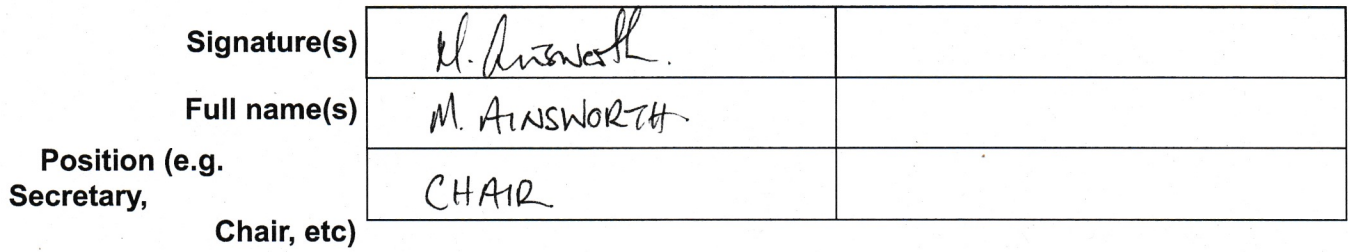 Signature(s) M. Ainsworth.
Full name(s) M. AINSWORTH
Position (e.g.
Secretary, CHAIR
Chair, etc)